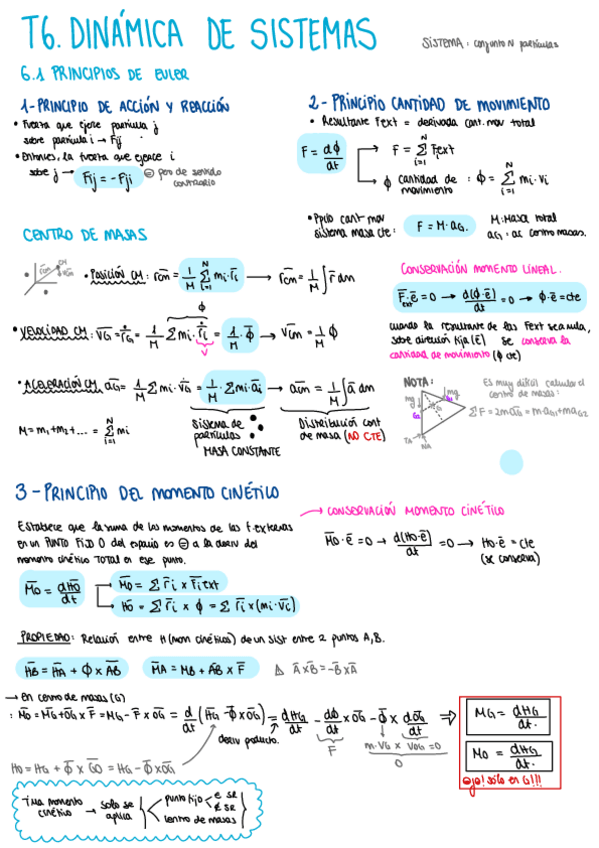 T6. DINÁMICA DE SISTEMAS
SISTEMA: conjunto N partículas
6.1 PRINCIPIOS DE EULER
1-PRINCIPIO DE ACCIÓN Y REACCIÓN
• Fuerza que ejerce partícula j
sobre partícula i → Fij
• Entonces, la fuerza que ejerce i
sobre j → Fij = -Fji ⊜ pero de sentido
contrario
2-PRINCIPIO CANTIDAD DE MOVIMIENTO
• Resultante Fext = derivada cant. mov total
F = dϕ/dt
F = Σ Fext
ϕ cantidad de movimiento : ϕ = Σ mi·vi
• Ppio cant mov
sistema masa cte: F = M·aG. M: Masa total
aG: ac centro masas.
CENTRO DE MASAS
• POSICIÓN CM: rcm = 1/M Σ mi·ri → rcm = 1/M ∫ r dm
• VELOCIDAD CM: vG = ṙG = 1/M Σ mi·ṙi = 1/M·ϕ → vcm = 1/M ϕ
• ACELERACIÓN CM aG = 1/M Σ mi·v̇G = 1/M·Σ mi·ai → acm = 1/M ∫ a dm
M = m1+m2+... = Σ mi
Sistema de
partículas
MASA CONSTANTE
Distribución cont
de masa (NO CTE)
CONSERVACIÓN MOMENTO LINEAL.
Fext·e = 0 → d(ϕ·e)/dt = 0 → ϕ·e = cte
cuando la resultante de las Fext sea nula,
sobre dirección fija (e) se conserva la
cantidad de movimiento (ϕ cte)
NOTA:
Es muy difícil calcular el
centro de masas:
ΣF = 2maG = m·aG1+maG2
3-PRINCIPIO DEL MOMENTO CINÉTICO
Establece que la suma de los momentos de las f. externas
en un PUNTO FIJO O del espacio es ⊜ a la deriv del
momento cinético TOTAL en ese punto.
Mo = dHo/dt
Mo = Σ ri x Fi ext
Ho = Σ ri x ϕ = Σ ri x (mi·vi)
→ CONSERVACIÓN MOMENTO CINÉTICO
Mo·e = 0 → d(Ho·e)/dt = 0 → Ho·e = cte
(se conserva)
PROPIEDAD: Relación entre H (mom cinéticos) de un sist entre 2 puntos A, B.
HB = HA + ϕ x AB
MA = MB + AB x F
⚠ AxB = -BxA
→ En centro de masas (G)
: Mo = MG+OG x F = MG - F x OG = d/dt (HG - ϕxOG) = dHG/dt - dϕ/dt x OG - ϕ x dOG/dt ⇒
deriv producto.
F
m·vG x vOG = 0
0
Ho = HG + ϕ x GO = HG - ϕxOG
MG = dHG/dt.
Mo = dHG/dt.
ojo! sólo en G!!!
Tma momento
cinético → solo se
aplica
punto fijo
e se
∉ se
centro de masas